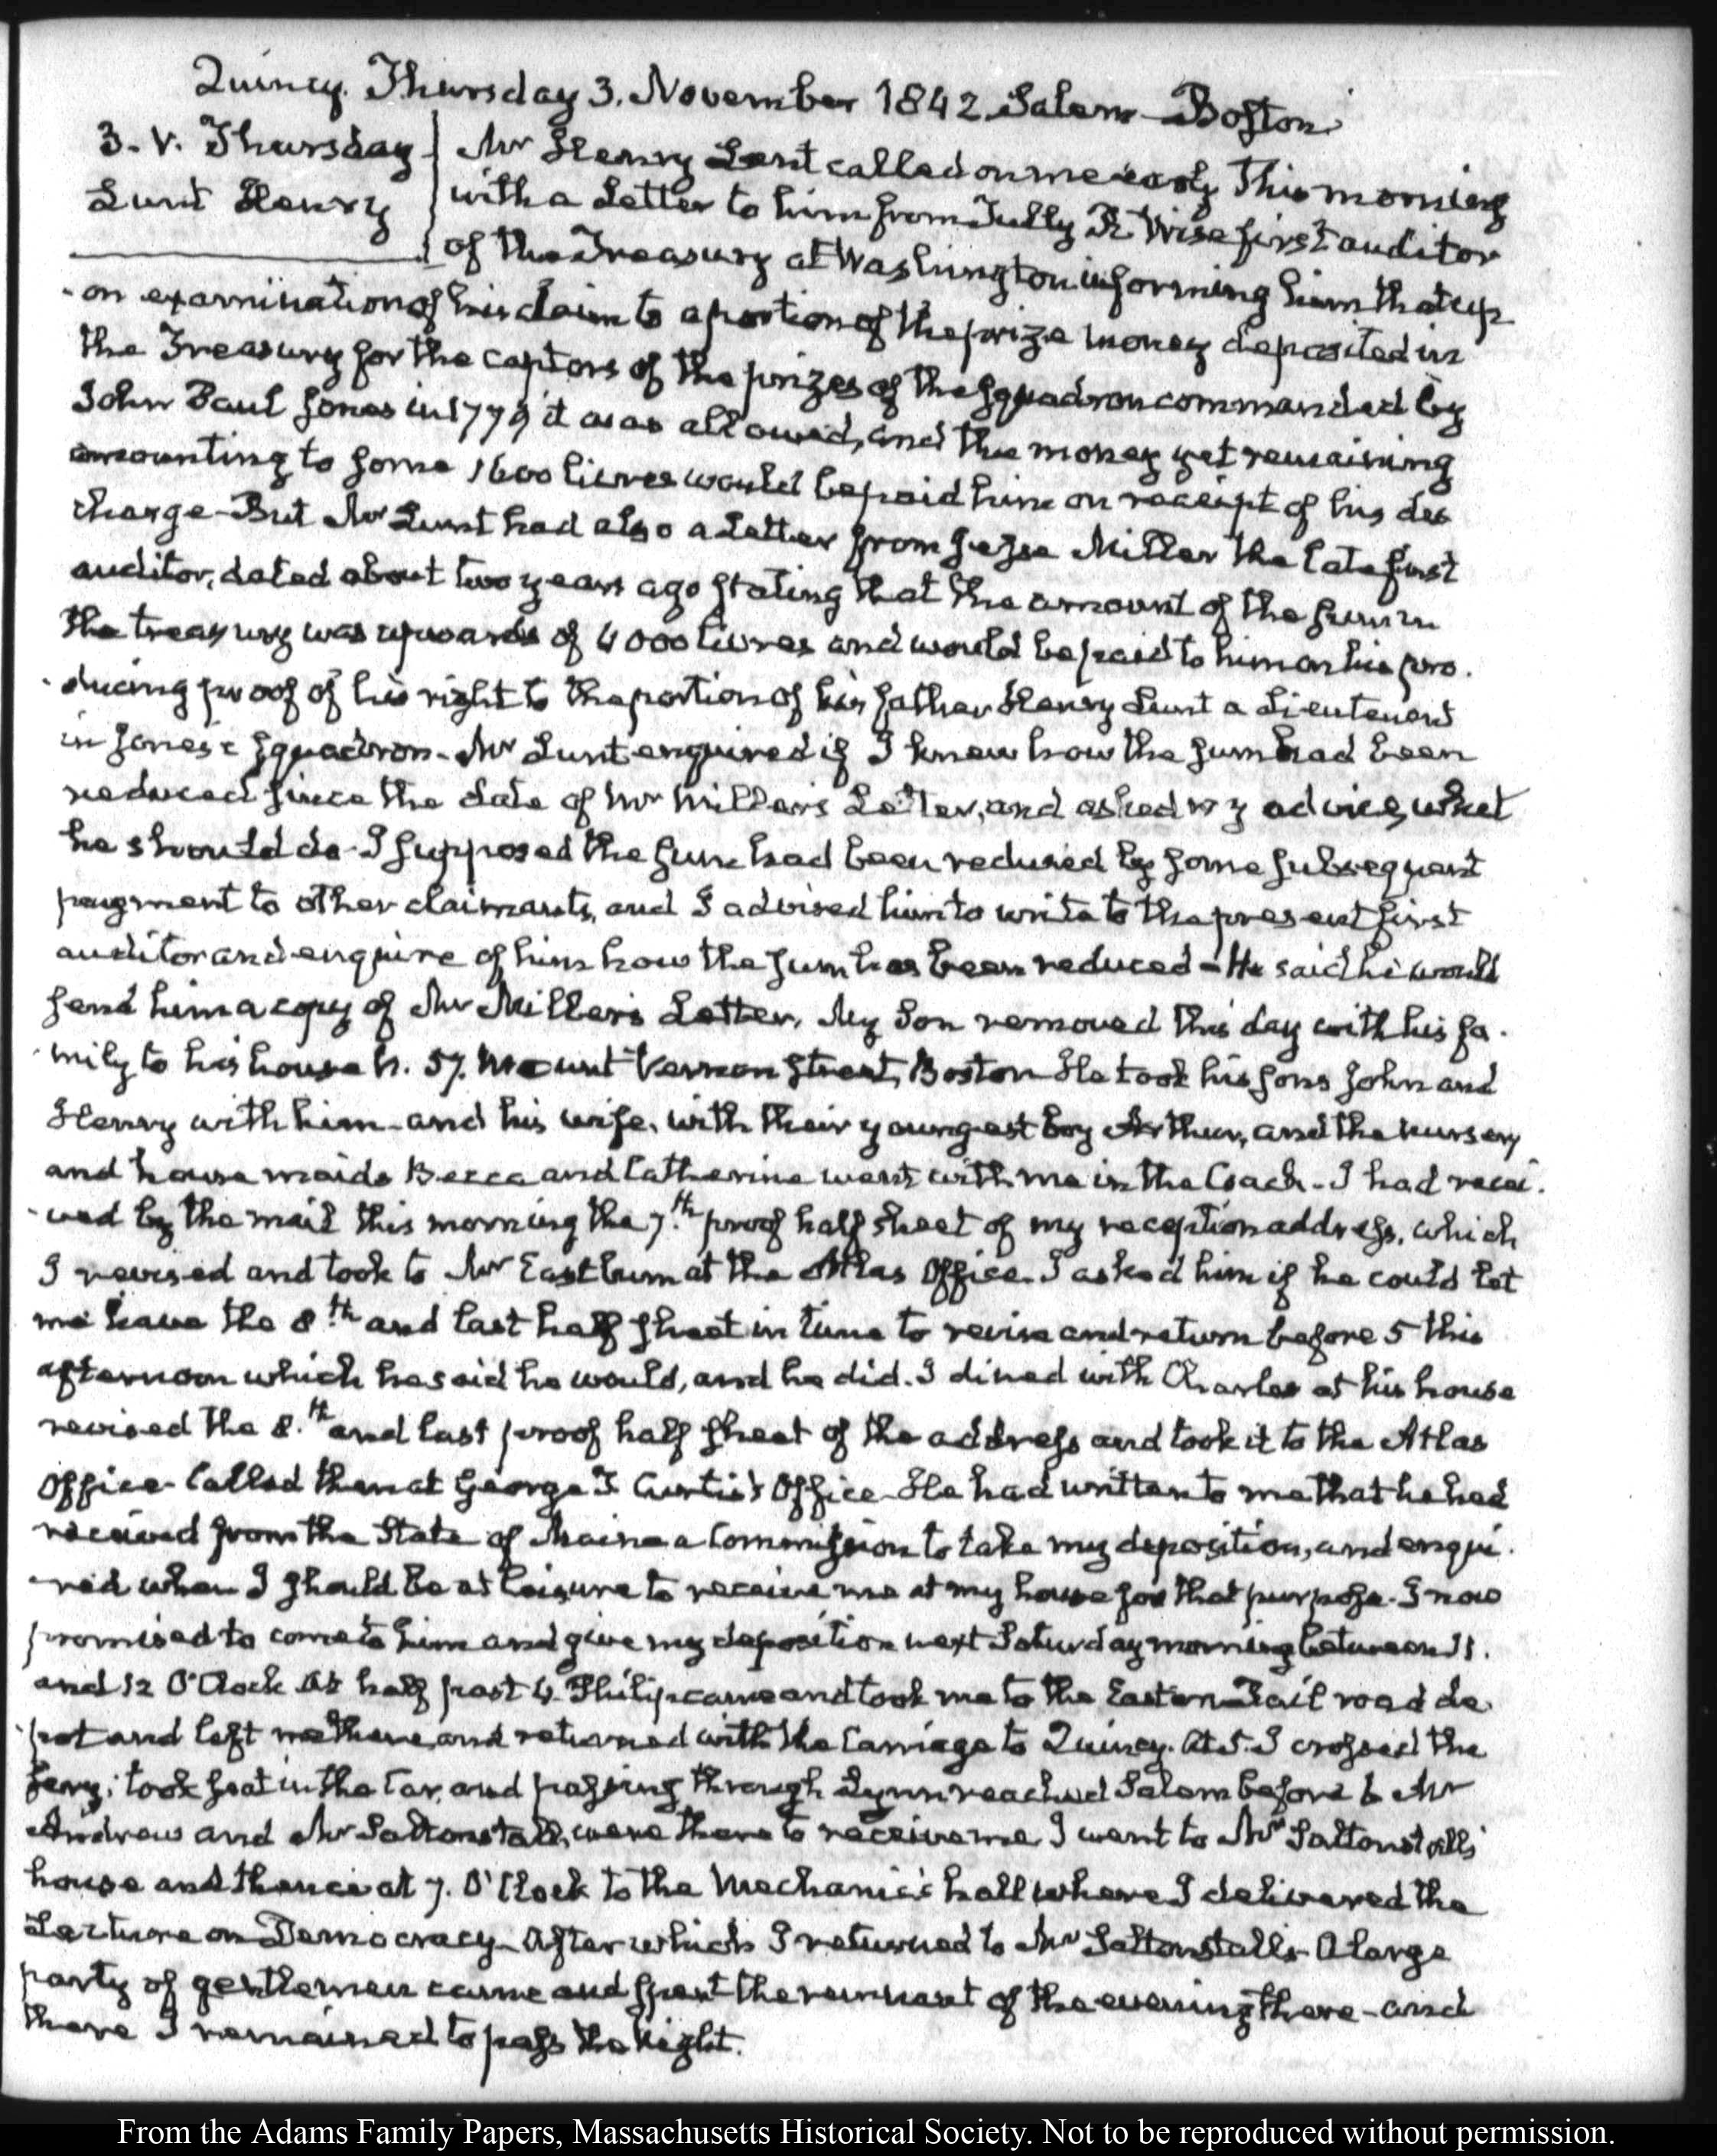 Quincy. Thursday 3. November 1842. Salem – Boston
3. V. Thursday
Lunt Henry
Mr Henry Lunt called on me early this morning
with a Letter to him from Tully R. Wise first auditor
of the Treasury at Washington informing him that up
-on examination of his claim to a portion of the prize money deposited in
the Treasury for the captors of the prizes of the squadron commanded by
John Paul Jones in 1779 it was allowed, and the money yet remaining
amounting to some 1600 livres would be paid him on receipt of his dis
charge – But Mr Lunt had also a Letter from Jesse Miller the late first
auditor, dated about two years ago stating that the amount of the sum in
the treasury was upwards of 4000 livres and would be paid to him on his pro-
-ducing proof of his right to the portion of his father Henry Lunt a Lieutenant
in Jones's squadron – Mr Lunt enquired if I knew how the sum had been
reduced since the date of Mr Miller's Letter, and asked my advice, what
he should do – I supposed the sum had been reduced by some subsequent
payment to other claimants, and I advised him to write to the present first
auditor and enquire of him how the sum has been reduced – He said he would
send him a copy of Mr Miller's Letter. My Son removed this day with his fa-
-mily to his house N. 57. Mount Vernon Street, Boston – He took his sons John and
Henry with him – and his wife, with their youngest boy Arthur, and the nursery
and house maids Becca and Catherine went with me in the Coach – I had recei-
-ved by the mail this morning the 7.th proof half sheet of my reception address, which
I revised and took to Mr Eastburn at the Atlas Office. I asked him if he could let
me have the 8.th and last half sheet in time to revise and return before 5 this
afternoon which he said he would, and he did. I dined with Charles at his house
revised the 8.th and last proof half sheet of the address and took it to the Atlas
Office – Called then at George T Curtis's Office – He had written to me that he had
received from the State of Maine a Commission to take my deposition, and enqui-
-red when I should be at leisure to receive me at my house for that purpose – I now
promised to come to him and give my deposition next Saturday morning between 11.
and 12 O'Clock. At half past 4. Philip came and took me to the Eastern Rail road de-
-pot and left me there, and returned with the Carriage to Quincy. At 5. I crossed the
ferry, took seat in the Car, and passing through Lynn reached Salem before 6 Mr
Andrew and Mr Saltonstall, were there to receive me I went to Mr Saltonstall's
house and thence at 7. O'Clock to the Mechanic's hall where I delivered the
Lecture on Democracy – After which I returned to Mr Saltonstalls – A large
party of gentlemen came and spent the remnant of the evening there – and
there I remained to pass the Night.
From the Adams Family Papers, Massachusetts Historical Society. Not to be reproduced without permission.